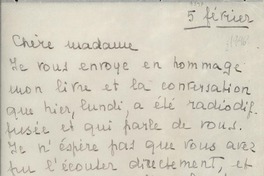 5 février
Chère madame
Je vous envoye en hommage
mon livre et la conversation
que hier, lundi, a été radiodif-
fusée et qui parle de vous.
Je n'éspère pas que vous avez
pu l'écouter directement, et